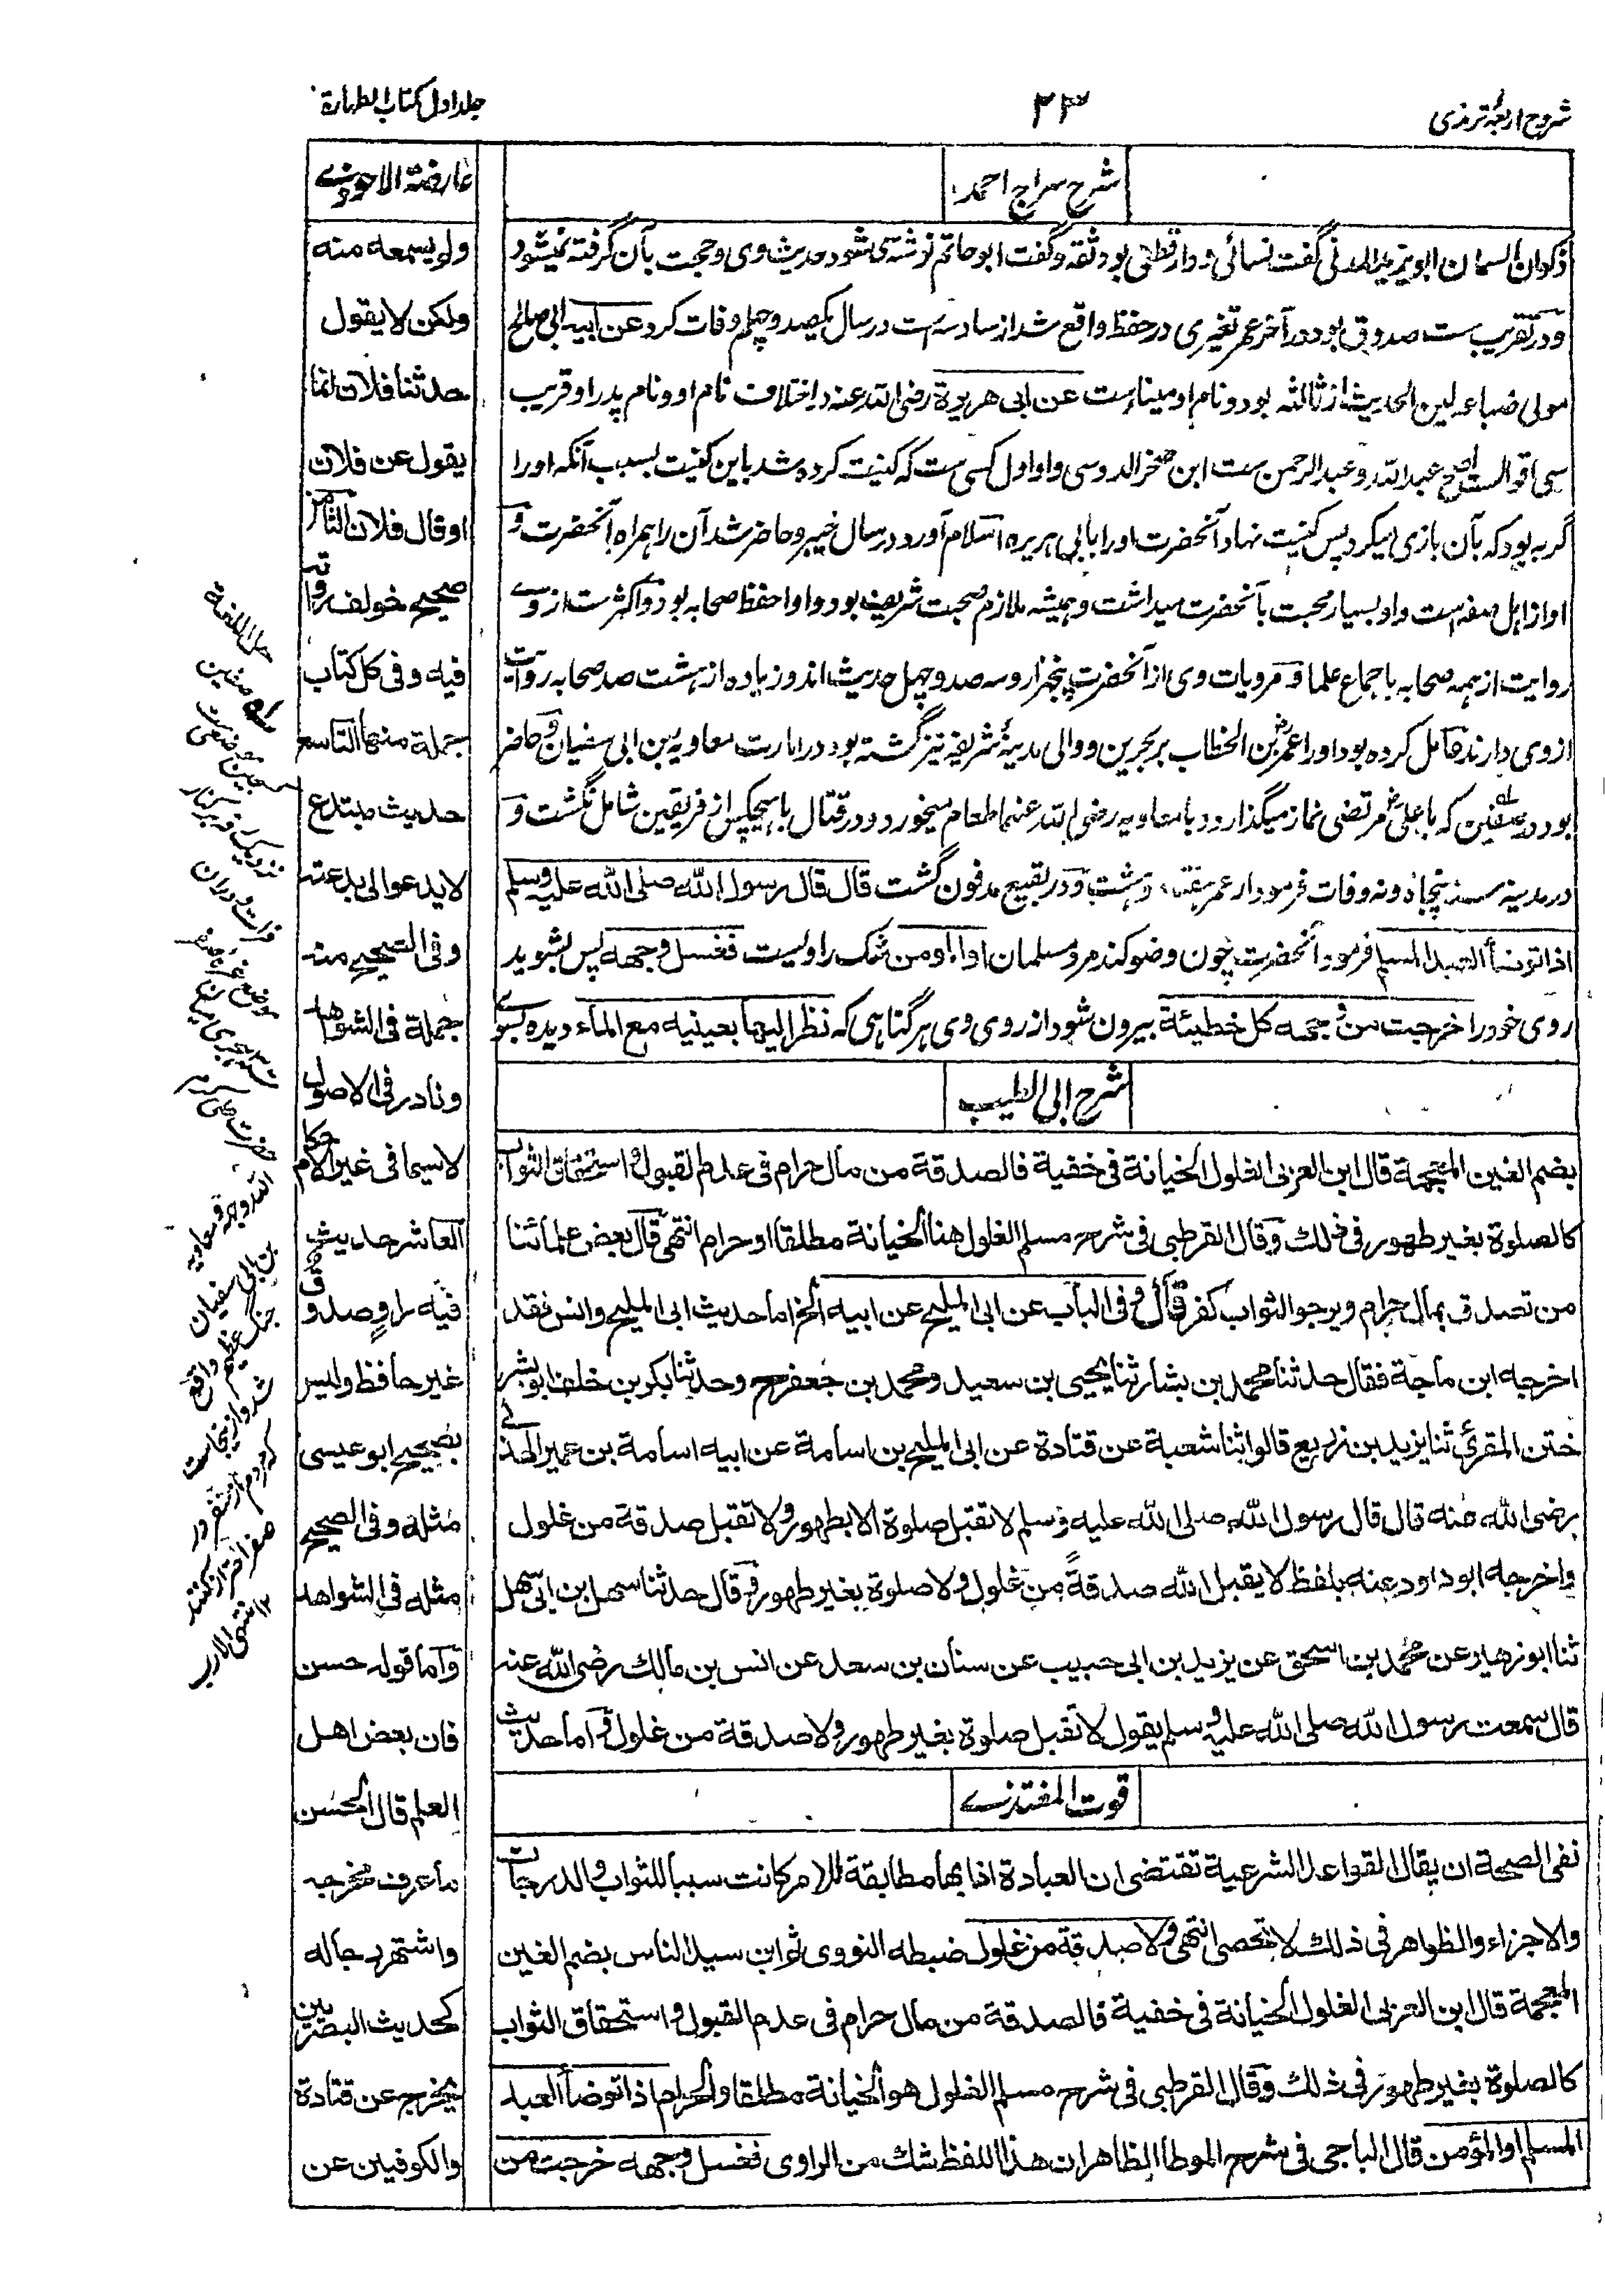 شروح اربعہ ترمذی
۲۳
جلد اول کتاب الطہارة
شرح سراج احمد
ذکوان السمان ابو یزید المدنی گفت نسائی و دارقطنی بود ثقه و گفت ابو حاتم نوشته می شود حدیث وی و حجت بآن گرفته نمیشود
و در تقریب ست صدوق بود در آخر عمر تغیری در حفظ واقع شد از سادسه است در سال یکصد و چهلم وفات کرد عن ابیه ابی صالح
مولی ضباعه لین الحدیث از ثالثه بود و نام او میناست عن ابی هریرة رضی الله عنه در اختلاف نام او و نام پدر او قریب
سی اقوالست اصح عبدالله و عبدالرحمن ست ابن صخر الدوسی و او اول کسی ست که کنیت کرده شد باین کنیت بسبب آنکه او را
گربه بود که بآن بازی میکرد پس کنیت نهاد آنحضرت او را بابی هریره اسلام آورد در سال خیبر و حاضر شد آن را همراه آنحضرت و
او از اهل صفه است و او بسیار محبت بآنحضرت میداشت و همیشه ملازم صحبت شریف بود و او احفظ صحابه بود و اکثرست از روے
روایت از همه صحابه باجماع علما و مرویات وی از آنحضرت پنجهزار و سه صد و چهل حدیث اند و زیاده از هشت صد صحابه روایت
ازوی دارند عامل کرده بود او را عمر بن الخطاب بر بحرین و والی مدینۂ شریفه نیز گشته بود در امارت معاویه بن ابی سفیان و حاضر
بود در صفین که با علی مرتضی نماز میگذارد و با معاویه رضی الله عنهما طعام میخورد و در قتال با هیچیکس از فریقین شامل نگشت و
در مدینه سنه پنجاه و نه وفات فرمود از عمر هفتاد و هشت و در بقیع مدفون گشت قال قال رسول الله صلی الله علیه وسلم
اذا توضأ العبد المسلم فرمود آنحضرت چون وضو کند مرد مسلمان او المؤمن شک راویست فغسل وجهه پس بشوید
روی خود را خرجت من وجهه کل خطیئة بیرون شود از روی وی هر گناهی که نظر الیها بعینیه مع الماء دیده بسوے
شرح ابی الطیب
بضم الغین المعجمة قال ابن العربی الغلول الخیانة فی خفیة فالصدقة من مال حرام فی عدم القبول و استحقاق الثواب
کالصلوة بغیر طهور فی ذلک وقال القرطبی فی شرح مسلم الغلول هنا الخیانة مطلقا او حرام انتهی قال بعض علمائنا
من تصدق بمال حرام ویرجو الثواب کفر قال وفی الباب عن ابی الملیح عن ابیه الخ اما حدیث ابی الملیح وانس فقد
اخرجه ابن ماجة فقال حدثنا محمد بن بشار ثنا یحیی بن سعید و محمد بن جعفر ح وحدثنا بکر بن خلف ابو بشر
ختن المقرئ ثنا یزید بن زریع قالوا ثنا شعبة عن قتادة عن ابی الملیح بن اسامة عن ابیه اسامة بن عمیر الهذلے
رضی الله عنه قال قال رسول الله صلی الله علیه وسلم لا تقبل صلوة الا بطهور ولا تقبل صدقة من غلول
واخرجه ابو داود عنه بلفظ لا یقبل الله صدقة من غلول ولا صلوة بغیر طهور وقال حدثنا سهل ابن ابی سهل
ثنا ابو زهیر عن محمد بن اسحق عن یزید بن ابی حبیب عن سنان بن سعد عن انس بن مالک رضی الله عنه
قال سمعت رسول الله صلی الله علیه وسلم یقول لا تقبل صلوة بغیر طهور ولا صدقة من غلول و اما حدیث
قوت المغتذے
نفی الصحة ان یقال القواعد الشرعیة تقتضی ان العبادة اذا اتی بها مطابقة للامر کانت سببا للثواب والدرجات
والاجزاء والظواهر فی ذلک لا تحصی انتهی ولا صدقة من غلول ضبطه النووی ثم ابن سید الناس بضم الغین
المعجمة قال ابن العربی الغلول الخیانة فی خفیة فالصدقة من مال حرام فی عدم القبول و استحقاق الثواب
کالصلوة بغیر طهور فی ذلک وقال القرطبی فی شرح مسلم الغلول هو الخیانة مطلقا والحرام اذا توضأ العبد
المسلم او المؤمن قال الباجی فی شرح الموطأ الظاهر ان هذا اللفظ شک من الراوی فغسل وجهه خرجت من
عارضة الاحوذے
ولو یسمعه منه
ولکن لا یقول
حدثنا فلان انما
یقول عن فلان
او قال فلان الثامن
صحیح خولف رواته
فیه وفی کل کتاب
جملة منها التاسع
حدیث مبتدع
لا یدعو الی بدعته
وفی الصحیح منه
جملة فی الشواهد
ونادر فی الاصول
لاسیما فی غیر الاحکام
العاشر حدیث
فیه راو صدوق
غیر حافظ ولیس
بصحیح ابو عیسی
مثله وفی الصحیح
مثله فی الشواهد
واما قوله حسن
فان بعض اهل
العلم قال الحسن
ما عرف مخرجه
واشتهر رجاله
کحدیث البصریین
یخرج عن قتادة
والکوفیین عن
حل اللغة
له صفین
نزدیک
فرات و دران
موضع
حضرت علی کرم
الله وجهه و معاویه
بن ابی سفیان
جنگ عظیم واقع
شد و ازینجاست
که مردم از سفر در
صفر احتراز کنند
۱۲ منتهی الارب